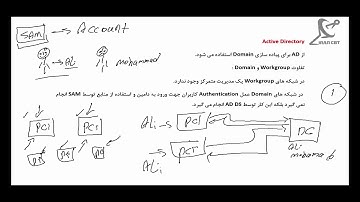 IRAN CBT
Active Directory
از AD برای پیاده سازی Domain استفاده می شود.
تفاوت Workgroup و Domain :
در شبکه های Workgroup یک مدیریت متمرکز وجود ندارد.
در شبکه های Domain عمل Authentication کاربران جهت ورود به دامین و استفاده از منابع توسط SAM انجام
نمی گیرد بلکه این کار توسط AD DS انجام می گیرد.
SAM → Account
Ali mohammad
1
PC1 PC2
Ali PC1
Ali
DC
Ali